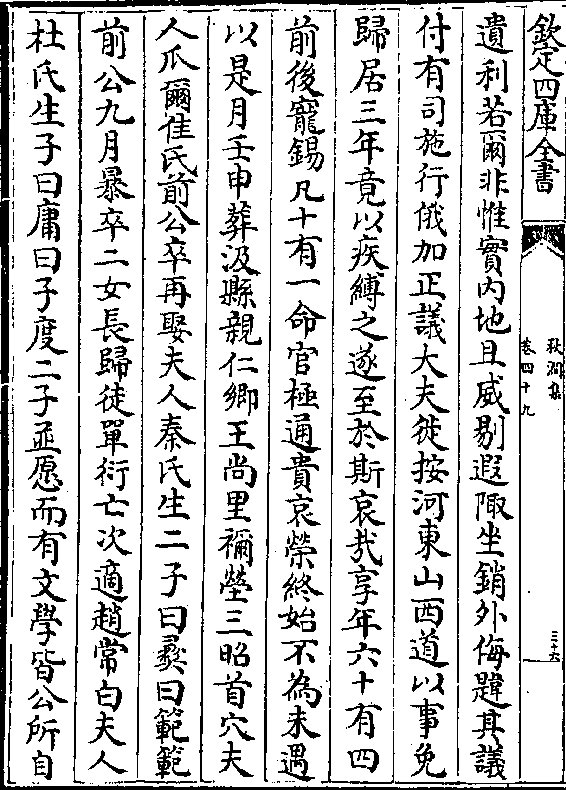 欽定四庫全書
秋澗集
卷四十九
三十六
遺利若爾非惟實内地且威剔遐陬坐銷外侮韙其議
付有司施行俄加正議大夫徙按河東山西道以事免
歸居三年竟以疾縛之遂至於斯哀㢤享年六十有四
前後寵錫凡十有一命官極通貴哀榮終始不為未遇
以是月壬申葬汲縣親仁鄉王尚里禰塋三昭首穴夫
人瓜爾佳氏前公卒再娶夫人秦氏生二子曰彛曰範範
前公九月暴卒二女長歸徒單衍亡次適趙常白夫人
杜氏生子曰庸曰子度二子並愿而有文學皆公所自